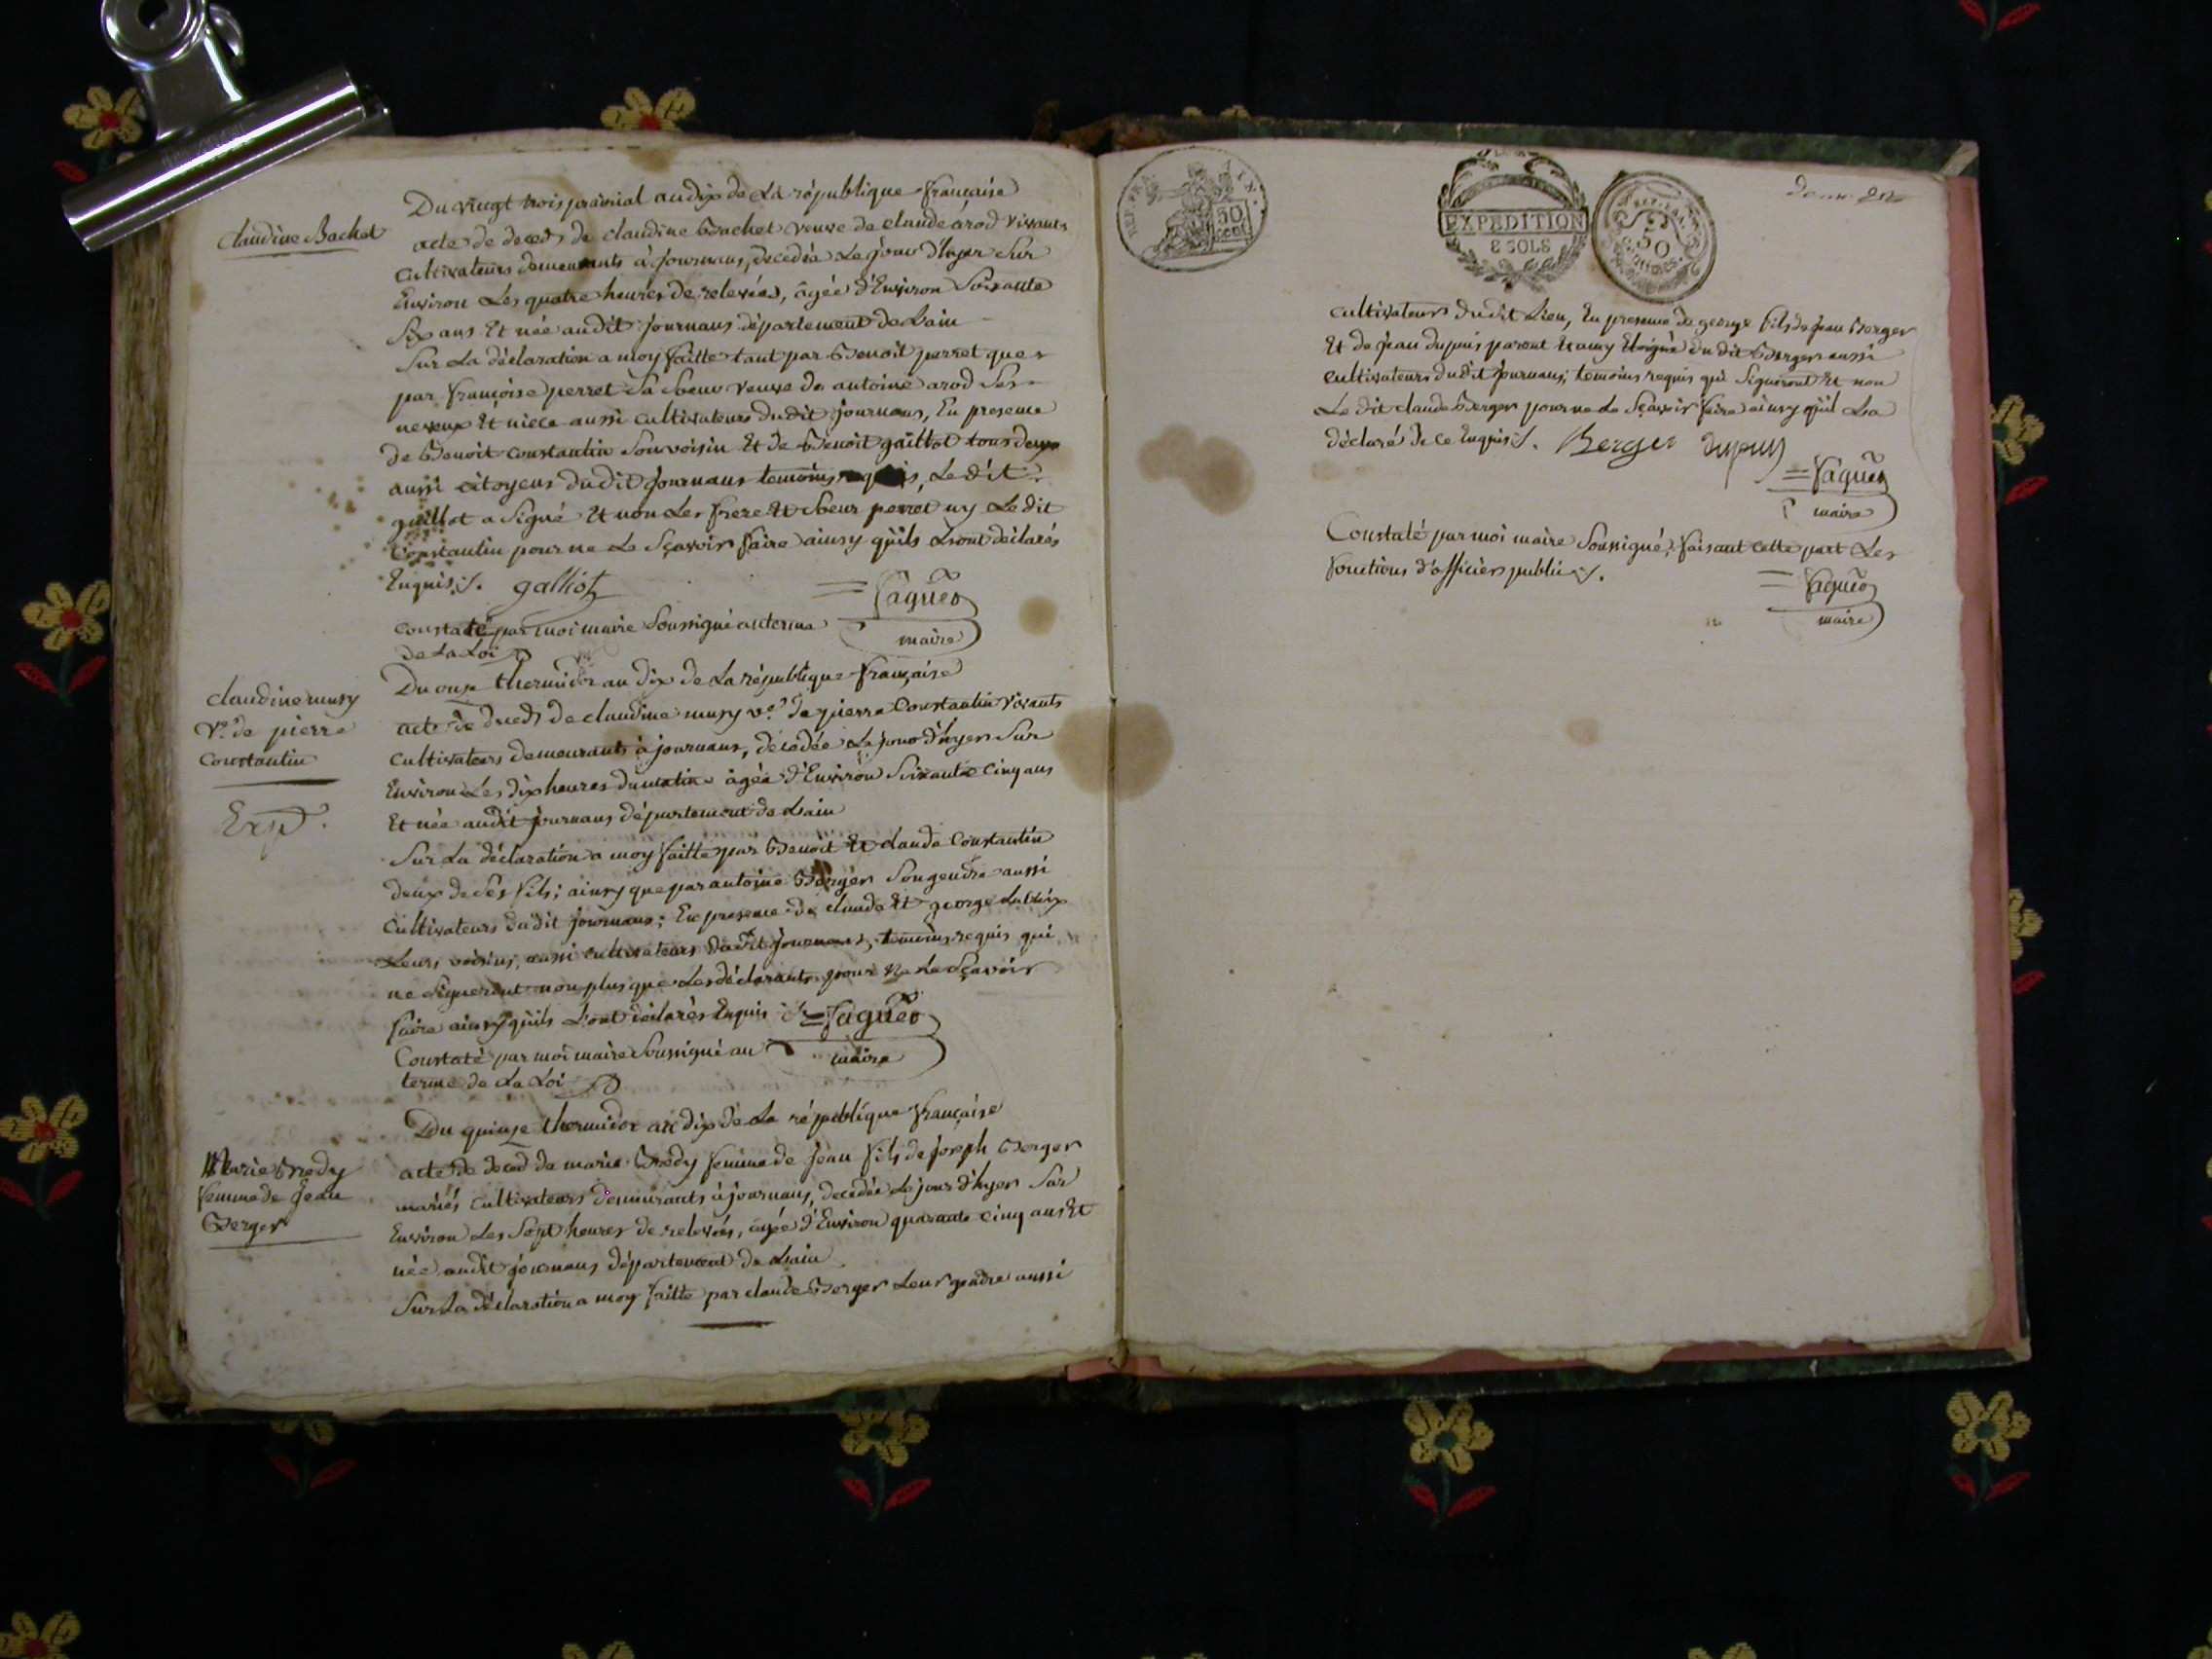 Claudine Bachet
Du vingt trois prairial an dix de La république française
acte de deced de claudine Bachet veuve de claude arod vivants
cultivateurs demeurants à journans, decedée Le jour d'hyer Sur
Environ Les quatre heures de relevées, âgée d'Environ Soixante
Six ans Et née au dit journans département de Lain
Sur La déclaration a moy faitte tant par Benoit perret que
par françoise perret Sa Soeur veuve de antoine arod Ses
neveux Et niece aussi cultivateurs dudit journans, En presence
de Benoit constantin Son voisin Et de Benoit gaillot tous deux
aussi citoyens dudit journans temoins requis, Le dit
guillot a Signé Et non Les frere Et Soeur perret ny Le dit
Constantin pour ne Le Sçavoir faire ainsy qu'ils L'ont déclarés
Enquis ./. galliot
Faguet
constaté par moi maire Soussigné au terme
maire
de La Loi
claudine musy
Ve de pierre
Constantin
Exp.
Du onze thermidor an dix de La république française
acte de deced de claudine musy ve. de pierre Constantin vivants
cultivateurs demeurants à journans, décedée Le jour d'hyer Sur
Environ Les dix heures du matin âgée d'Environ Soixante cinq ans
Et née audit journans département de Lain
Sur La déclaration a moy faitte par Benoit Et claude Constantin
deux de Ses fils; ainsy que par antoine Berger Son gendre aussi
cultivateurs dudit journans; En presence de claude Et george
Leurs voisins, aussi cultivateurs dudit journans, temoins requis qui
ne Signeront non plus que Les déclarants pour ne Le Sçavoir
faire ainsy qu'ils L'ont déclarés Enquis ./. Faguet
Constaté par moi maire Soussigné au
maire
terme de La Loi
Marie Bredy
femme de Jean
Berger
Du quinze thermidor an dix de La république française
acte de deced de marie Bredy femme de Jean fils de Joseph Berger
mariés cultivateurs demeurants à journans, decedée Le jour d'hyer Sur
Environ Les Sept heures de relevées, âgée d'Environ quarante cinq ans Et
née audit journans département de Lain
Sur La déclaration a moy faitte par claude Berger Leur gendre aussi
REP. FRA.
50
cent
EXPEDITION
8 SOLS
50
cultivateurs dudit Lieu, En presence de george fils de Jean Berger
Et de Jean dupuis parent Et amy du dit Berger aussi
cultivateurs dudit journans; temoins requis qui Signeront Et non
Le dit claude Berger pour ne Le Sçavoir faire ainsy qu'il L'a
déclaré de ce Enquis ./. Berger dupuis
Faguet
maire
Constaté par moi maire Soussigné, faisant cette part Les
fonctions d'officier public ./.
Faguet
maire